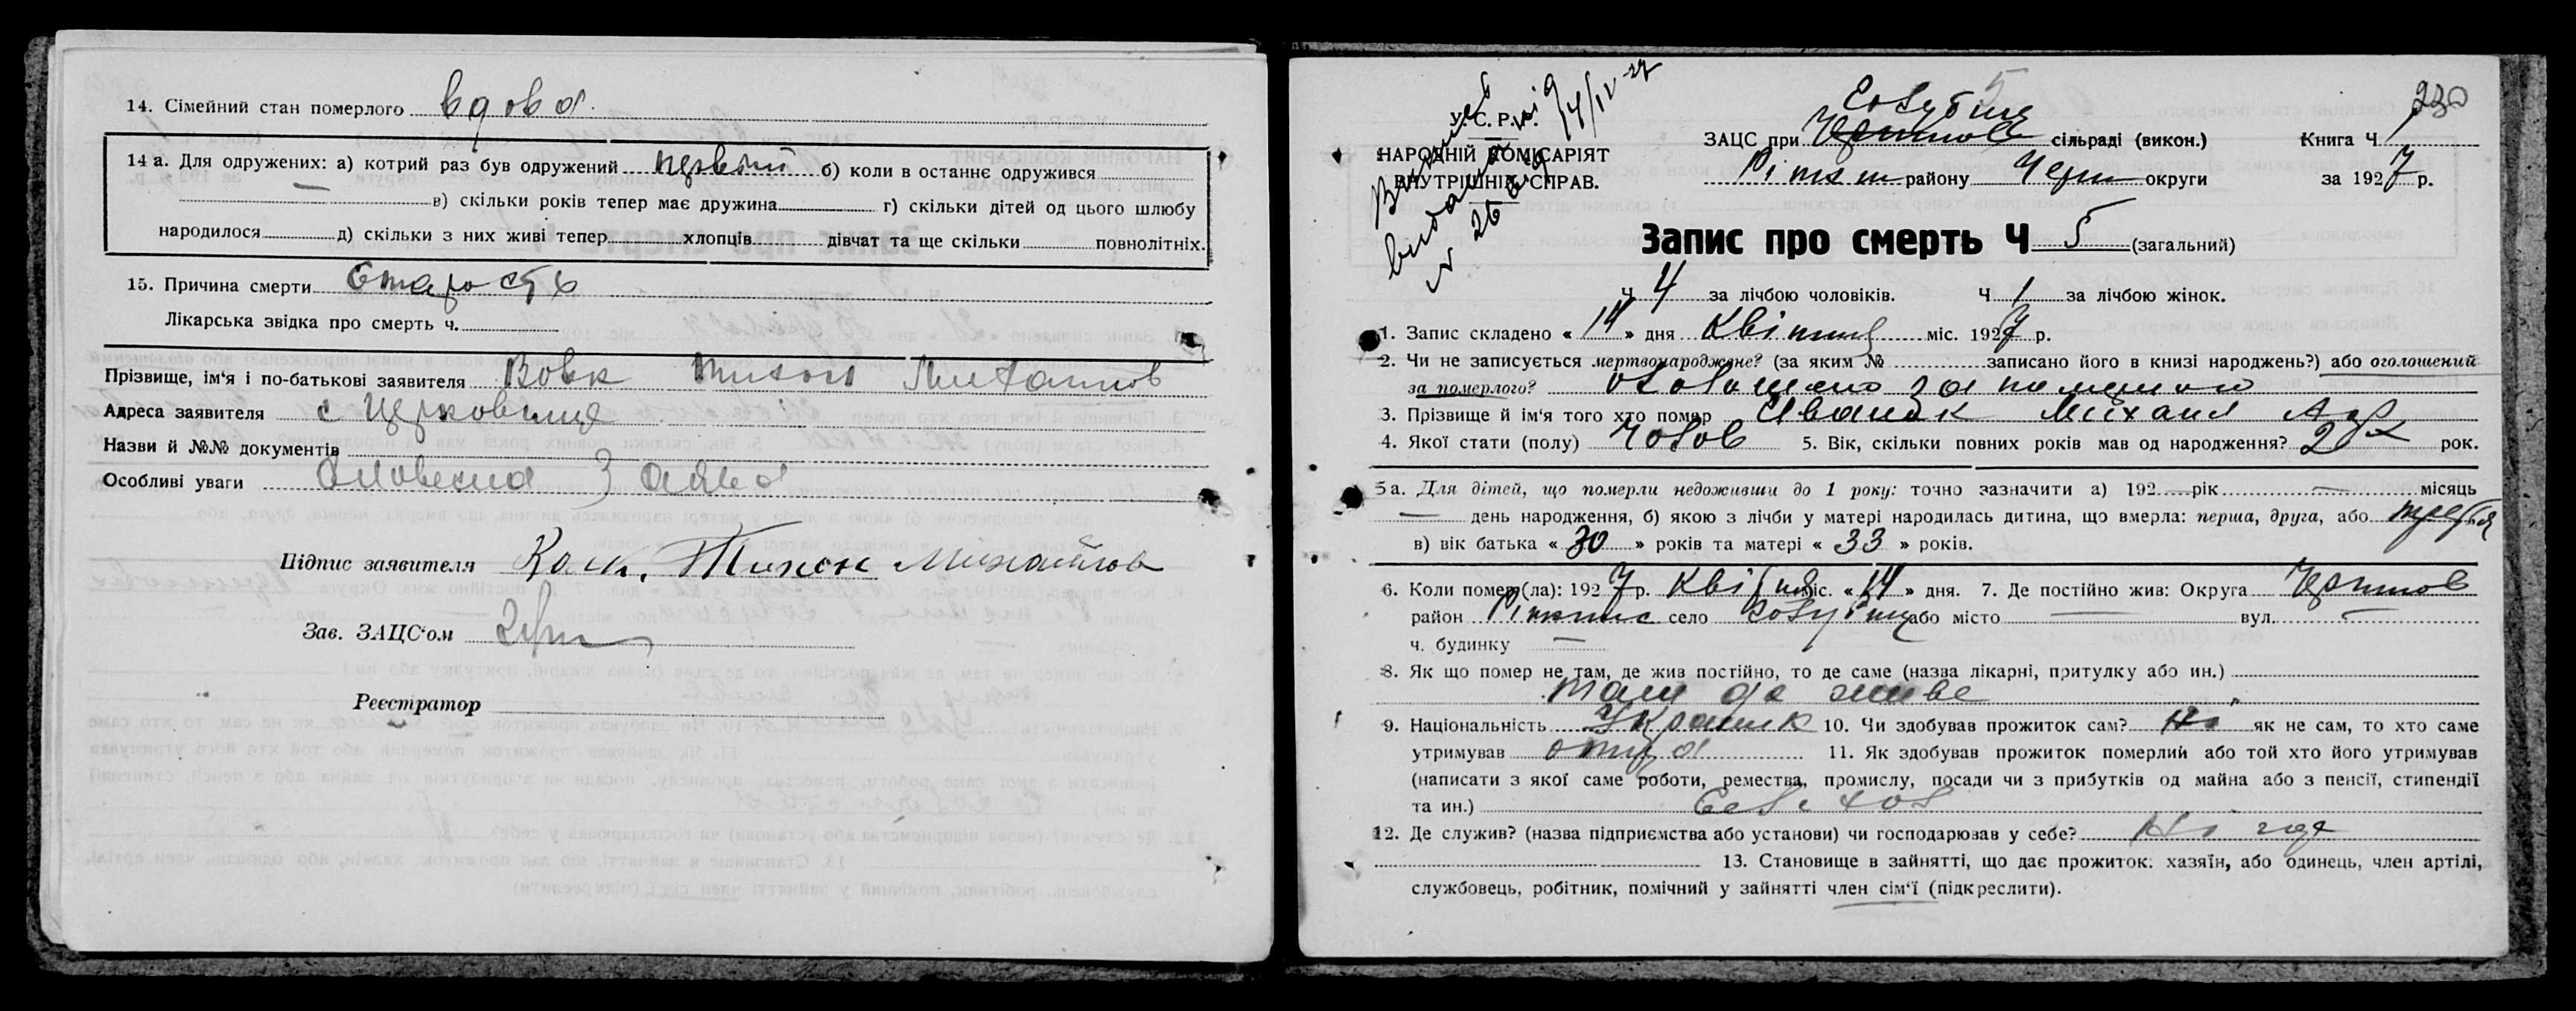 14. Сімейний стан померлого вдова
14 а. Для одружених: а) котрий раз був одружений первий б) коли в останнє одружився
— в) скільки років тепер має дружина г) скільки дітей од цього шлюбу
народилося д) скільки з них живі тепер хлопців дівчат та ще скільки повнолітніх.
15. Причина смерти Старость
Лікарська звідка про смерть ч.
Прізвище, ім'я і по-батькові заявителя Вовк Тихон Михайлов
Адреса заявителя с Церковище
Назви й №№ документів
Особливі уваги Словесна Заява
Підпис заявителя Тихон Михайлов
Зав. ЗАЦС'ом
Реєстратор
У. С. Р. Р.
НАРОДНІЙ КОМІСАРІЯТ
ВНУТРІШНІХ СПРАВ.
230
ЗАЦС при сільраді (викон.) Книга Ч
району Черн округи за 1927 р.
Запис про смерть Ч 5 (загальний)
Ч 4 за лічбою чоловіків. Ч 1 за лічбою жінок.
1. Запис складено « 14 » дня Квітня міс. 1927 р.
2. Чи не записується мертвонароджене? (за яким № записано його в книзі народжень?) або оголошений
за померлого? оголошено за померлого
3. Прізвище й ім'я того хто помер Михаил
4. Якої стати (полу) Чолов 5. Вік, скільки повних років мав од народження? 2 рок.
5 а. Для дітей, що померли недоживши до 1 року: точно зазначити а) 192 — рік — місяць
— день народження, б) якою з лічби у матері народилась дитина, що вмерла: перша, друга, або
в) вік батька « 30 » років та матері « 33 » років.
6. Коли помер(ла): 1927 р. Квітня міс. « 14 » дня. 7. Де постійно жив: Округа Чернигов
район село або місто — вул. —
ч. будинку —
8. Як що помер не там, де жив постійно, то де саме (назва лікарні, притулку або ин.)
там де живе
9. Національність Украинк 10. Чи здобував прожиток сам? Ні як не сам, то хто саме
утримував отца 11. Як здобував прожиток померлий або той хто його утримував
(написати з якої саме роботи, ремества, промислу, посади чи з прибутків од майна або з пенсії, стипендії
та ин.) Сель хоз
12. Де служив? (назва підприємства або установи) чи господарював у себе? Ні где
13. Становище в зайнятті, що дає прожиток: хазяїн, або одинець, член артілі,
службовець, робітник, помічний у зайнятті член сім'ї (підкреслити).